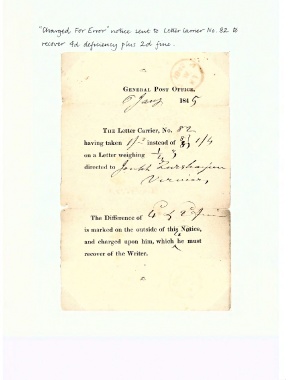 "Charged For Error" notice sent to Letter Carrier No. 82 to
recover 4d deficiency plus 2d fine.
GENERAL POST OFFICE,
6 Jany 1845
THE Letter Carrier, No. 82
having taken 1/- instead of 1/4
on a Letter weighing
directed to Joseph
The Difference of
is marked on the outside of this Notice,
and charged upon him, which he must
recover of the Writer.